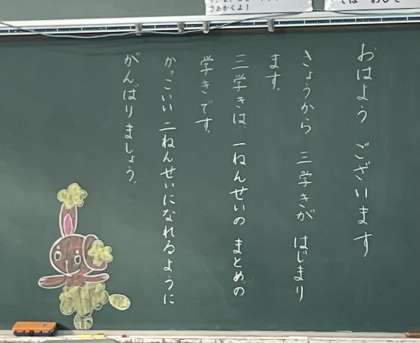 おはよう ございます
きょうから 三学きが はじまり
ます。
三学きは 一ねんせいの まとめの
学きです。
かっこいい 二ねんせいになれるように
がんばりましょう。